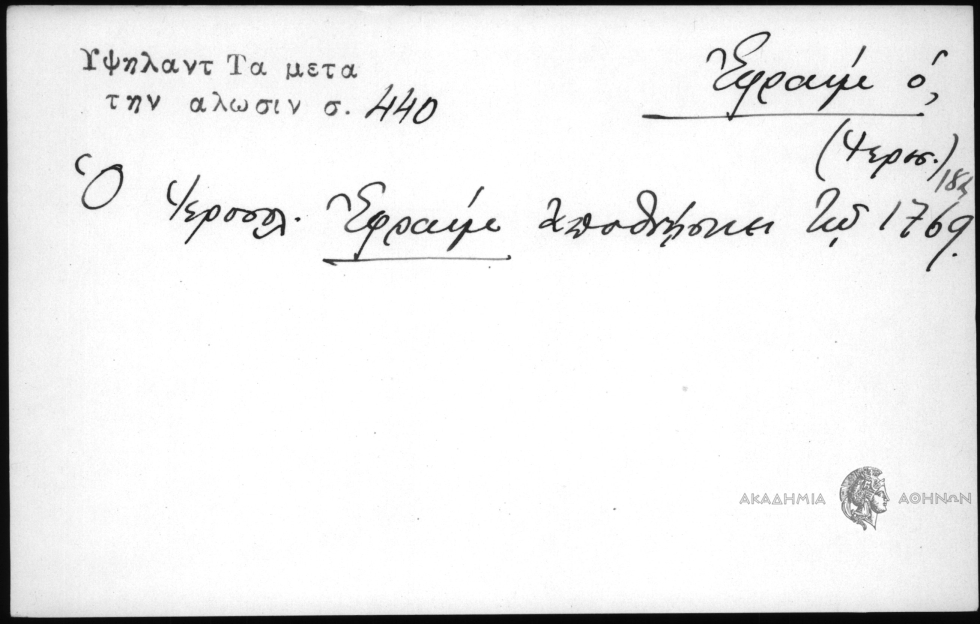 Υψηλαντ Τα μετα
την αλωσιν σ. 440
Ἐφραίμ ὁ,
(Ἱεροσ.)
Ὁ Ἱεροσολ. Ἐφραίμ ἀποθνήσκει τῷ 1769.
ΑΚΑΔΗΜΙΑ ΑΘΗΝΩΝ